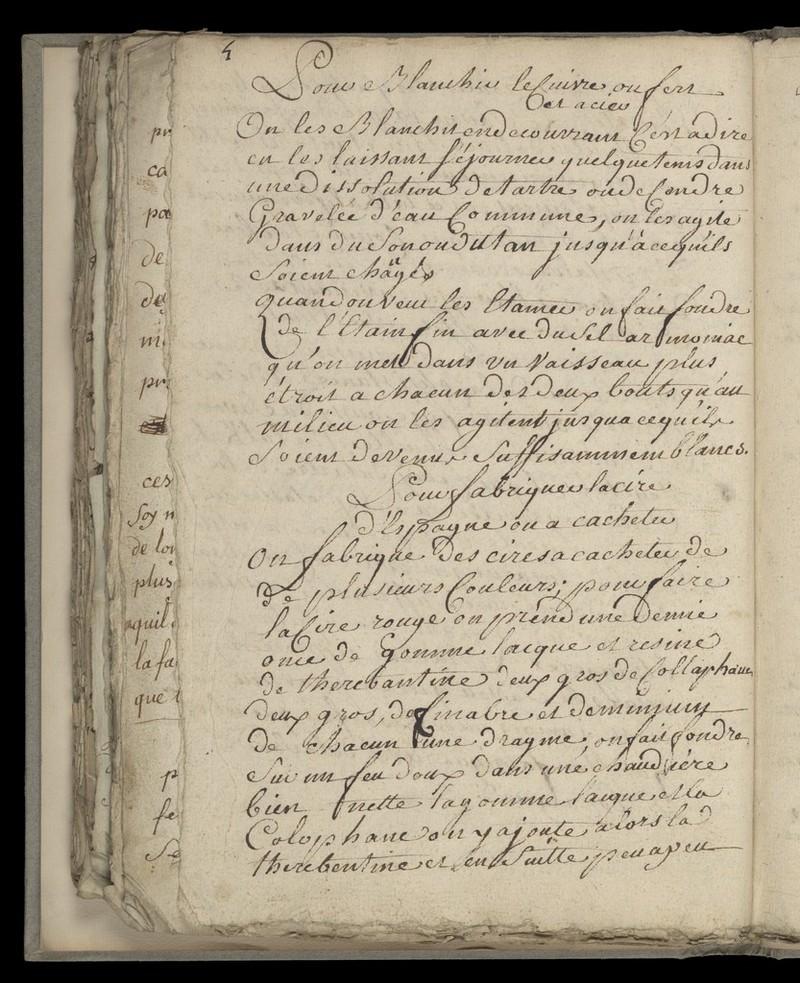 4
Pour Blanchir le Cuivre ou fert
et acier
On les Blanchit en decouvrant C'est adire
en les laissant séjourner quelque tems dans
une Dissolution de tartre ou de Cendre
Gravelée d'eau Commune, on les agite
dans du Son ou du tan jusqu'à cequ'ils
soient
quand on veut les Etamer on fait fondre
de l'Etain fin avec du sel armoniac
qu'on met dans un Vaisseau plus
étroit a chacun des deux bouts qu'au
milieu on les agitent jusqua cequ'ils
soient devenus Suffisamment blancs.
Pour fabriquer la cire
d'Espagne ou a cacheter
On fabrique des cires a cacheter de
de plusieurs Couleurs; pour faire
la Cire rouge on prend une demie
once de Gomme lacque et resine
de therebantine deux gros de Collaphane
deux gros, de Cinabre et de minium
de chacun une dragme, on fait fondre
sur un feu doux dans une chaudière
bien nette la gomme lacque et la
Colophane on y ajoute alors la
therebentine et en Suitte peu a peu
pr
ca
pa
de
du
m
pr
ces
Soy n
de lon
plus
aquil
la fa
que
p
fe
Se